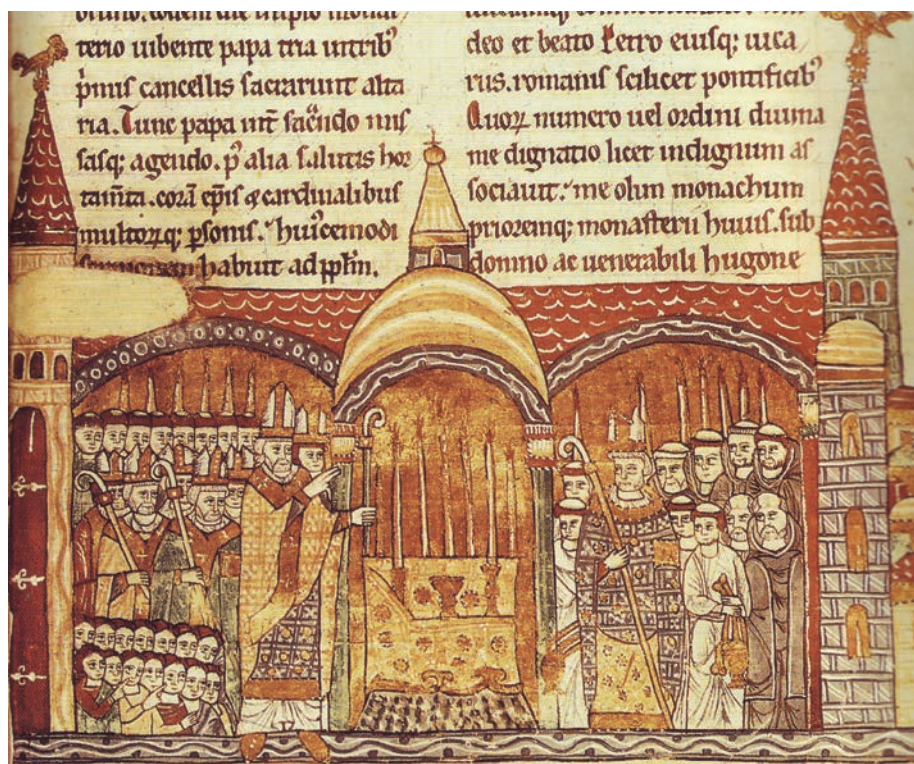 terio iubente papa tria in tribꝰ
p̄mis cancellis sacrarunt alta
ria. Tunc papa int̄ sac̄ndo mis
sasq; agendo. pꝰ alia salutis hor
tam̄ta. corā ep̄is & cardinalibus
multoꝝq; ꝑsonis. huiꝰcemodi
habuit ad pplm̄.
deo et beato Petro eiusq; uica
riis. romanis scilicet pontificibꝰ
Quoꝝ numero uel ordini diuina
me dignatio licet indignum as
sociauit. me olim monachum
prioremq; monasterii huius. sub
domno ac uenerabili hugone